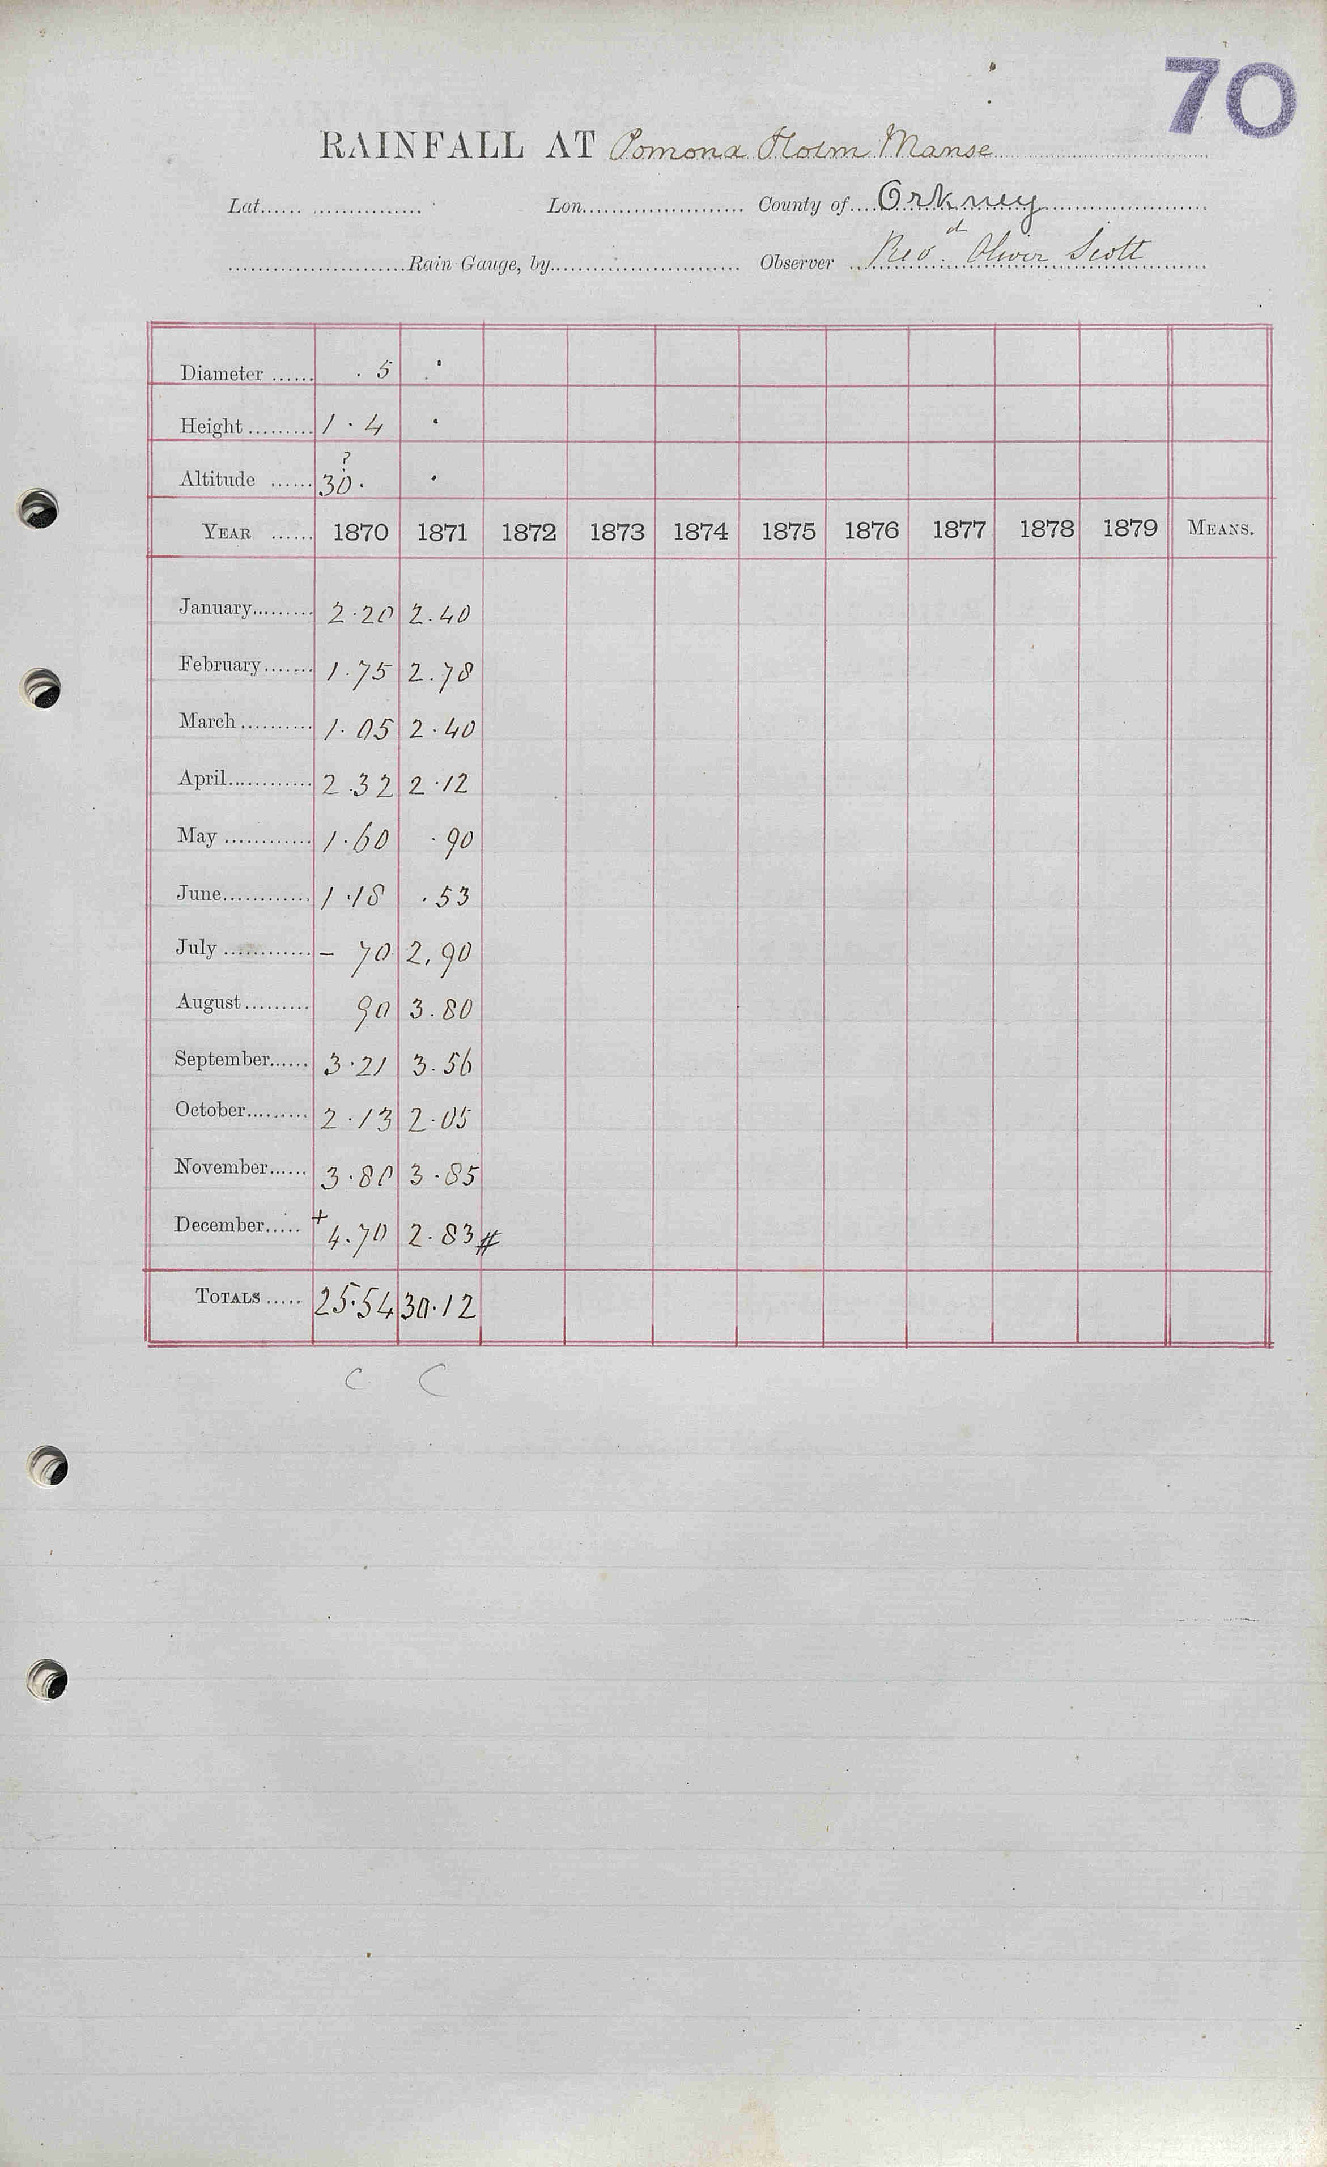 70
RAINFALL AT Pomona Holm Manse
Lat. Lon. County of Orkney
Rain Gauge, by Observer Revd. Oliver Scott
Diameter 5 .
Height 1.4 .
?
Altitude 30. .
YEAR 1870 1871 1872 1873 1874 1875 1876 1877 1878 1879 MEANS.
January 2.20 2.40
February 1.75 2.78
March 1.05 2.40
April 2.32 2.12
May 1.60 .90
June 1.18 .53
July – 70 2.90
August 90 3.80
September 3.21 3.56
October 2.13 2.05
November 3.80 3.85
December + 4.70 2.83 #
TOTALS 25.54 30.12
C C